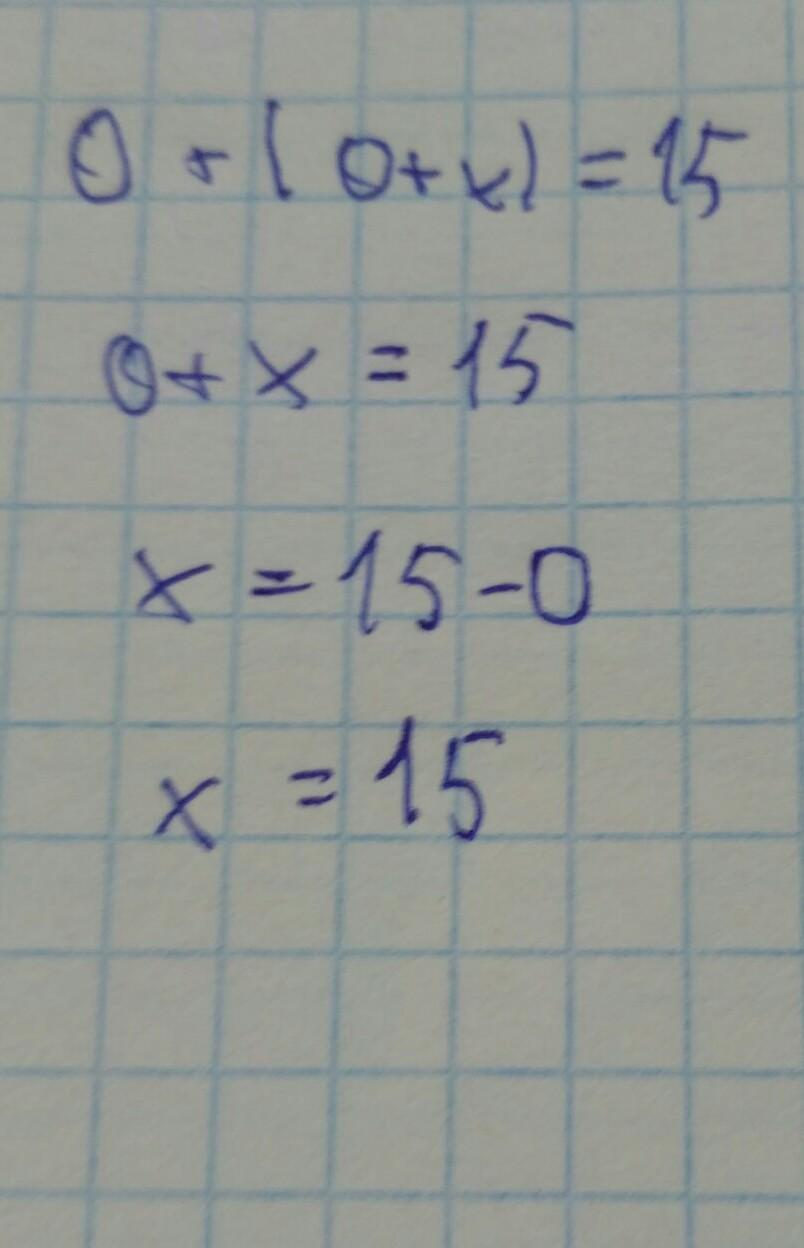 0 + (0+x) = 15
0+ x = 15
x = 15 - 0
x = 15